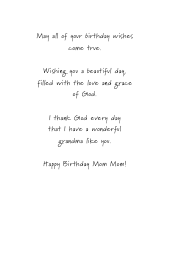 May all of your birthday wishes
come true.
Wishing you a beautiful day,
filled with the love and grace
of God.
I thank God every day
that I have a wonderful
grandma like you.
Happy Birthday Mom Mom!